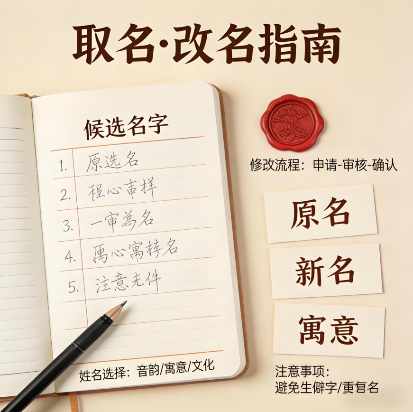 取名·改名指南
候选名字
1. 原选名
2. 程心审择
3. 一审为名
4. 寓心寓择名
5. 注意无件
姓名选择：音韵/寓意/文化
修改流程：申请-审核-确认
原名
新名
寓意
注意事项：
避免生僻字/重复名